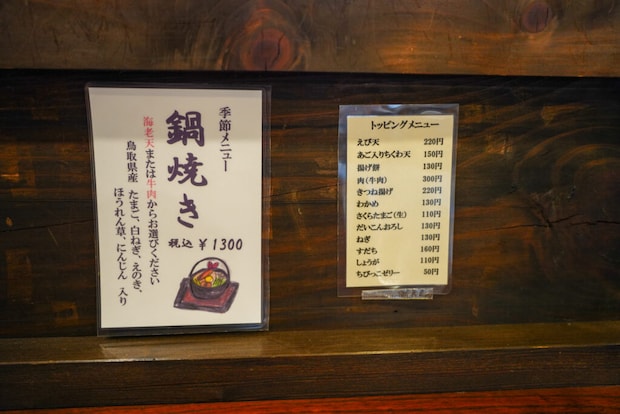 季節メニュー
鍋焼き
税込 ¥1300
海老天または牛肉からお選びください
鳥取県産 たまご、白ねぎ、えのき、
ほうれん草、にんじん 入り
トッピングメニュー
えび天 220円
あご入りちくわ天 150円
揚げ餅 130円
肉(牛肉) 300円
きつね揚げ 220円
わかめ 130円
さくらたまご(生) 110円
だいこんおろし 130円
ねぎ 130円
すだち 160円
しょうが 110円
ちびっこゼリー 30円